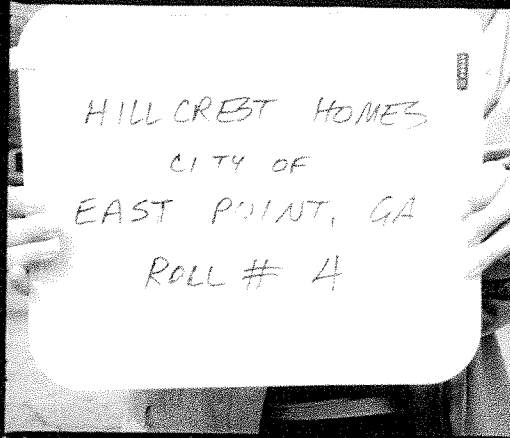 HILLCREST HOMES
CITY OF
EAST POINT, GA
ROLL # 4